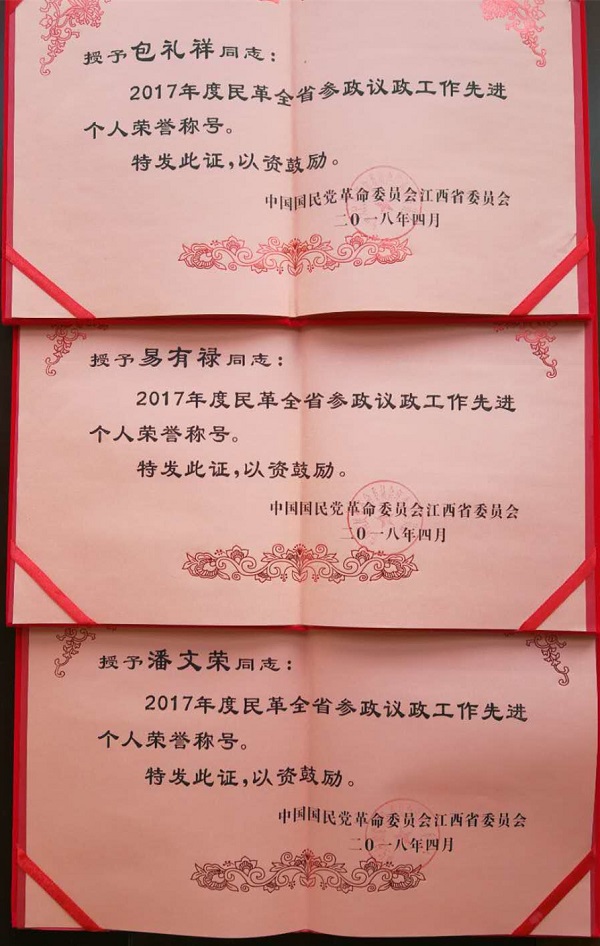 授予包礼祥同志：
2017年度民革全省参政议政工作先进
个人荣誉称号。
特发此证，以资鼓励。
中国国民党革命委员会江西省委员会
二0一八年四月
授予易有禄同志：
2017年度民革全省参政议政工作先进
个人荣誉称号。
特发此证，以资鼓励。
中国国民党革命委员会江西省委员会
二0一八年四月
授予潘文荣同志：
2017年度民革全省参政议政工作先进
个人荣誉称号。
特发此证，以资鼓励。
中国国民党革命委员会江西省委员会
二0一八年四月